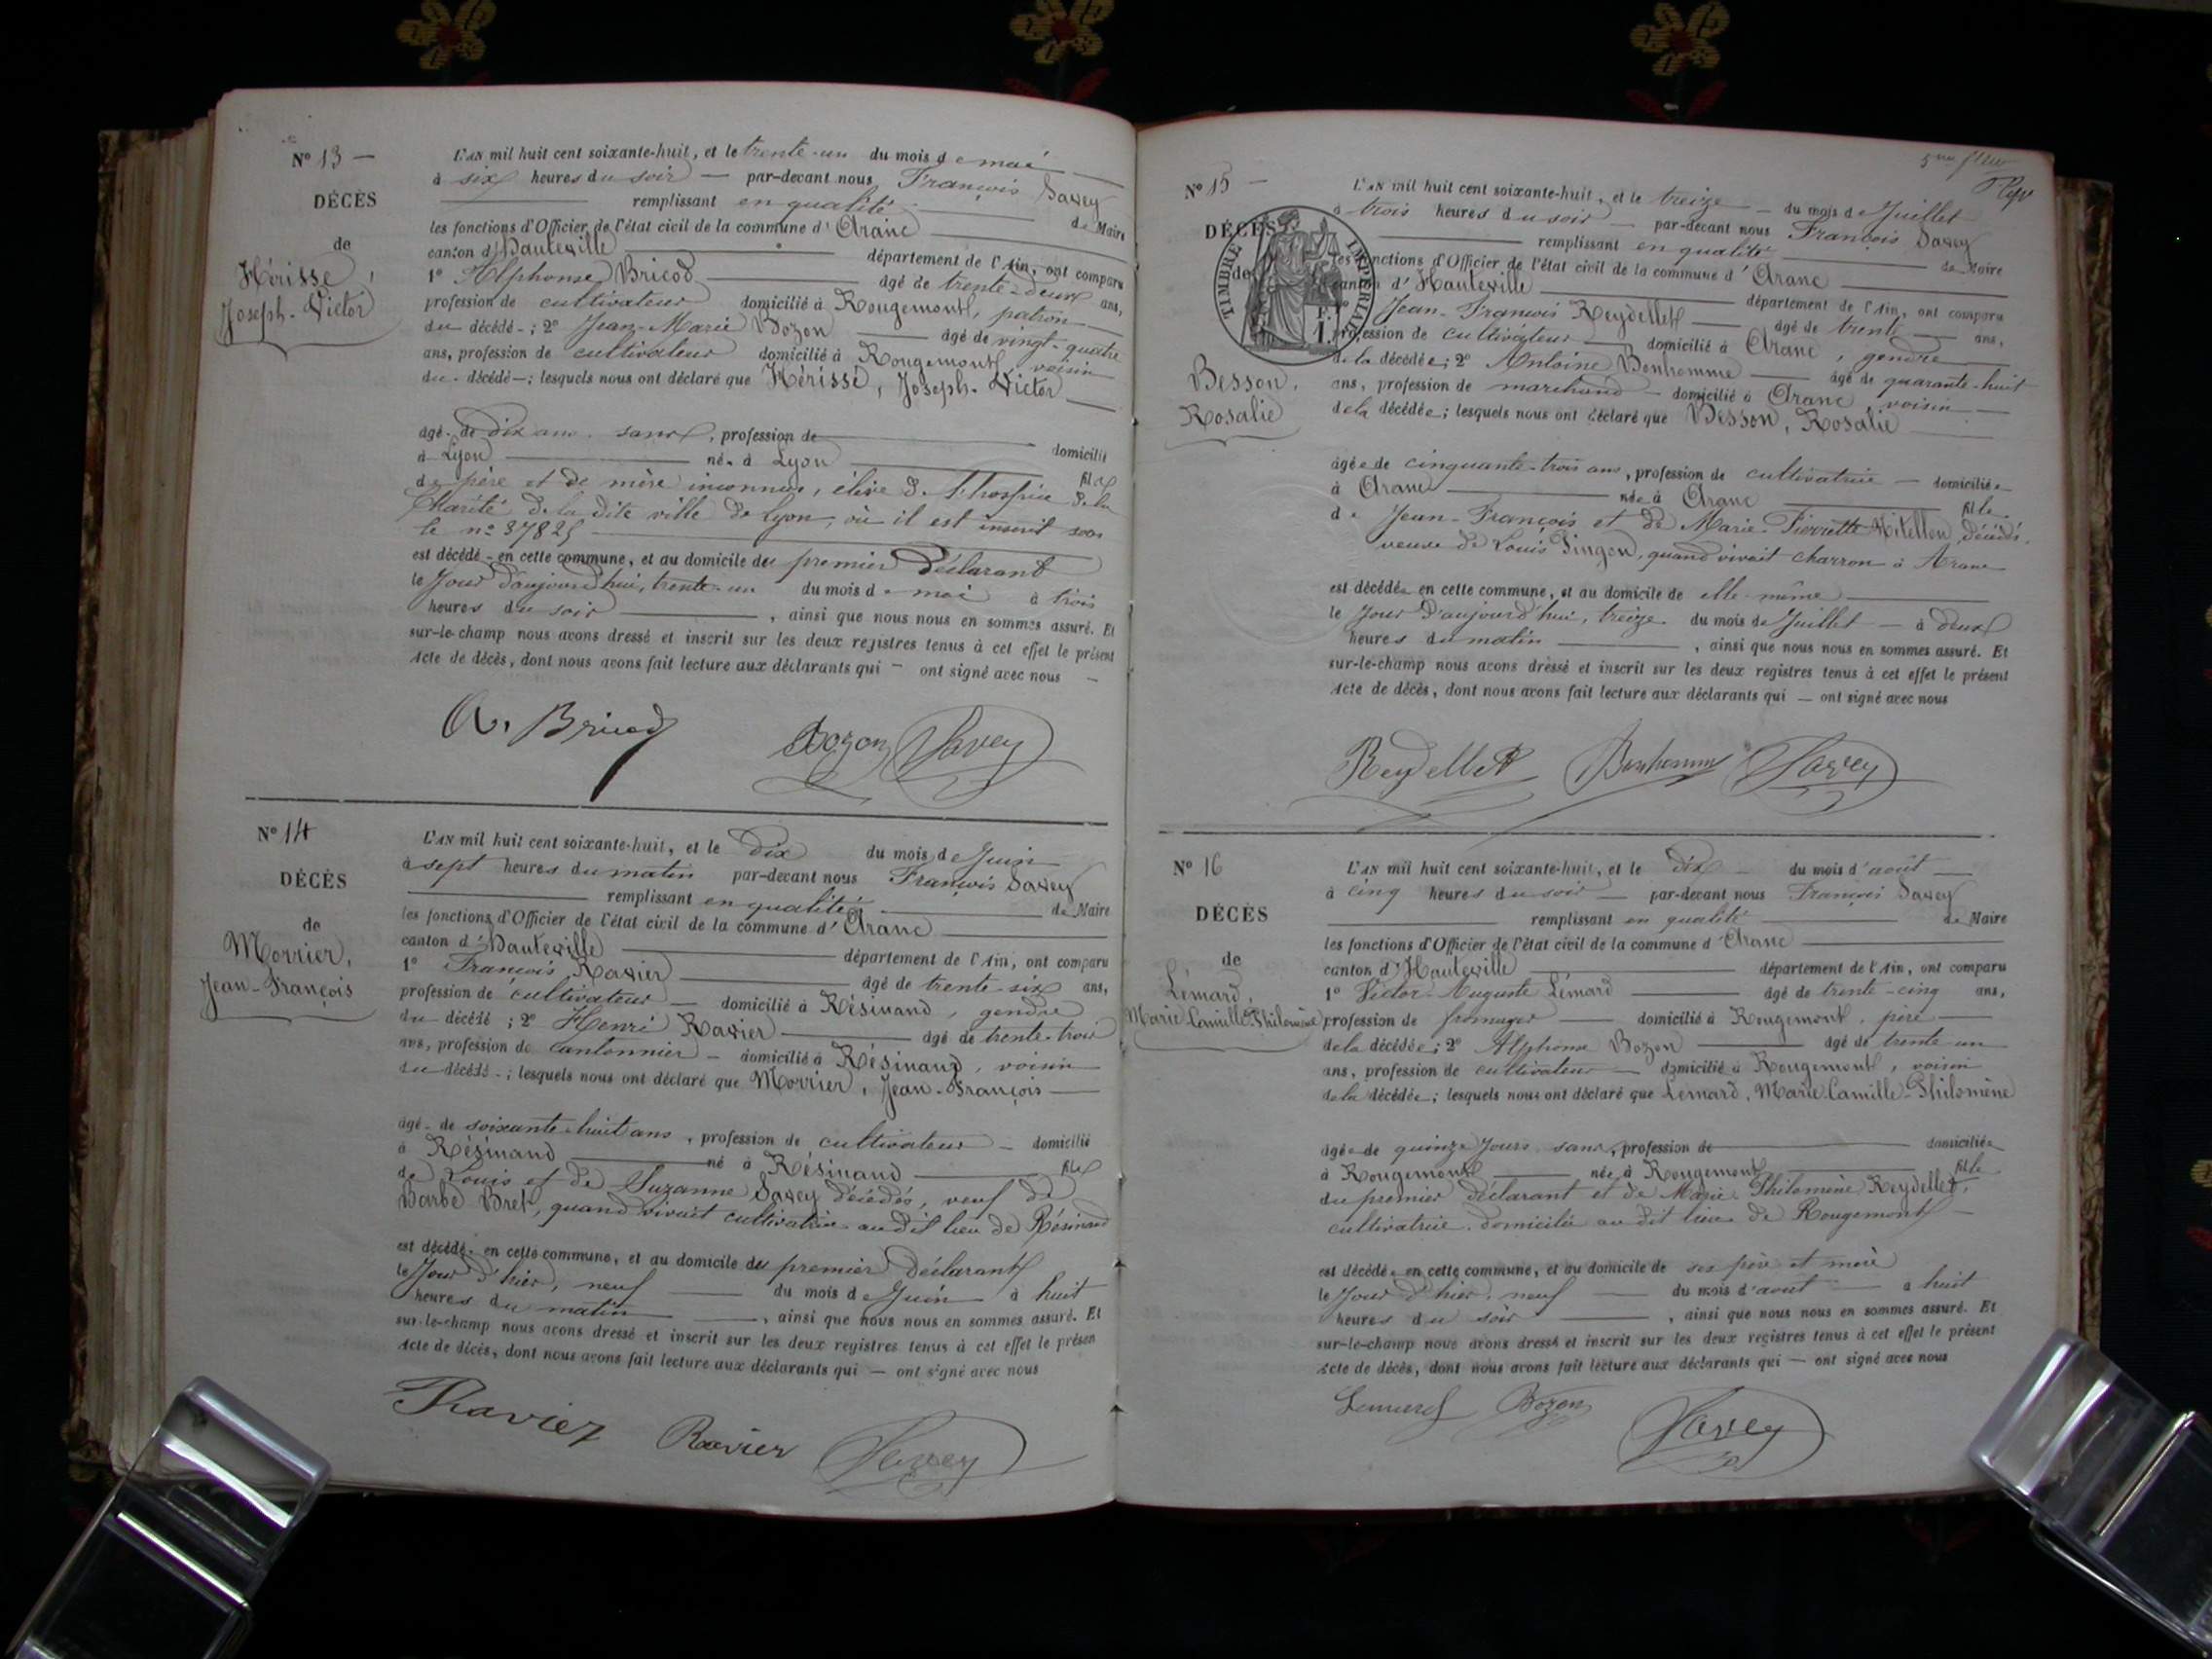 N° 13 —
DÉCÈS
de
Hérisse,
Joseph-Victor
L'AN mil huit cent soixante-huit, et le trente-un du mois de mai
à six heures du soir — par-devant nous François Savey
remplissant en qualité de Maire
les fonctions d'Officier de l'état civil de la commune d'Aranc
canton d'Hauteville département de l'Ain, ont comparu
1° Alphonse Bricod âgé de trente-deux ans,
profession de cultivateur domicilié à Rougemont, patron
du décédé ; 2° Jean-Marie Bozon âgé de vingt-quatre
ans, profession de cultivateur domicilié à Rougemont, voisin
du décédé ; lesquels nous ont déclaré que Hérissé, Joseph-Victor
âgé de dix ans, sans, profession de domicilié
à Lyon né à Lyon fils
de père et de mère inconnus, élève de l'hospice de la
Charité de la dite ville de Lyon, où il est inscrit sous
le n° 37825
est décédé en cette commune, et au domicile du premier déclarant
le Jour d'aujourd'hui, trente-un du mois de mai à trois
heures du soir , ainsi que nous nous en sommes assuré. Et
sur-le-champ nous avons dressé et inscrit sur les deux registres tenus à cet effet le présent
Acte de décès, dont nous avons fait lecture aux déclarants qui — ont signé avec nous —
A. Bricod Bozon Savey
N° 14
DÉCÈS
de
Morrier,
Jean-François
L'AN mil huit cent soixante-huit, et le dix du mois de Juin
à sept heures du matin par-devant nous François Savey
remplissant en qualité de Maire
les fonctions d'Officier de l'état civil de la commune d'Aranc
canton d'Hauteville département de l'Ain, ont comparu
1° François Ravier âgé de trente-six ans,
profession de cultivateur — domicilié à Résinand, gendre
du décédé ; 2° Henri Ravier âgé de trente-trois
ans, profession de cantonnier — domicilié à Résinand, voisin
du décédé ; lesquels nous ont déclaré que Morrier, Jean-François
âgé de soixante-huit ans, profession de cultivateur — domicilié
à Résinand né à Résinand fils
de Louis et de Suzanne Savey décédés, veuf de
Barbe Bret, quand vivait cultivatrice au dit lieu de Résinand
est décédé en cette commune, et au domicile du premier déclarant
le Jour d'hier, neuf du mois de Juin à huit
heures du matin , ainsi que nous nous en sommes assuré. Et
sur-le-champ nous avons dressé et inscrit sur les deux registres tenus à cet effet le présen
Acte de décès, dont nous avons fait lecture aux déclarants qui — ont signé avec nous
Ravier Ravier Savey
N° 15 —
DÉCÈS
de
TIMBRE IMPÉRIAL
Besson,
Rosalie
L'AN mil huit cent soixante-huit, et le treize — du mois de Juillet
à trois heures du soir — par-devant nous François Savey
remplissant en qualité de Maire
les fonctions d'Officier de l'état civil de la commune d'Aranc
canton d'Hauteville département de l'Ain, ont comparu
1° Jean-François Reydellet âgé de trente ans,
profession de cultivateur domicilié à Aranc, gendre
de la décédée ; 2° Antoine Bonhomme âgé de quarante-huit
ans, profession de marchand — domicilié à Aranc voisin
de la décédée ; lesquels nous ont déclaré que Besson, Rosalie
âgée de cinquante-trois ans, profession de cultivatrice — domiciliée
à Aranc née à Aranc fille
de Jean-François et de Marie-Pierrette décédés,
veuve de Louis Singon, quand vivait charron à Aranc
est décédée en cette commune, et au domicile de elle-même
le Jour d'aujourd'hui, treize du mois de Juillet — à deux
heures du matin , ainsi que nous nous en sommes assuré. Et
sur-le-champ nous avons dressé et inscrit sur les deux registres tenus à cet effet le présent
Acte de décès, dont nous avons fait lecture aux déclarants qui — ont signé avec nous
Reydellet Bonhomme Savey
N° 16
DÉCÈS
de
Lémard,
Marie-Camille-Philomène
L'AN mil huit cent soixante-huit, et le dix du mois d'août
à cinq heures du soir — par-devant nous François Savey
remplissant en qualité de Maire
les fonctions d'Officier de l'état civil de la commune d'Aranc
canton d'Hauteville département de l'Ain, ont comparu
1° Victor-Auguste Lémard âgé de trente-cinq ans,
profession de fromager domicilié à Rougemont, père
de la décédée ; 2° Alphonse Bozon âgé de trente-un
ans, profession de cultivateur — domicilié à Rougemont, voisin
de la décédée ; lesquels nous ont déclaré que Lemard, Marie-Camille-Philomène
âgée de quinze Jours sans, profession de domiciliée
à Rougemont née à Rougemont fille
du premier déclarant et de Marie Philomène Reydellet,
cultivatrice, domiciliée au dit lieu de Rougemont
est décédée en cette commune, et au domicile de ses père et mère
le Jour d'hier, neuf du mois d'août à huit
heures du soir , ainsi que nous nous en sommes assuré. Et
sur-le-champ nous avons dressé et inscrit sur les deux registres tenus à cet effet le présent
Acte de décès, dont nous avons fait lecture aux déclarants qui — ont signé avec nous
Lemard Bozon Savey